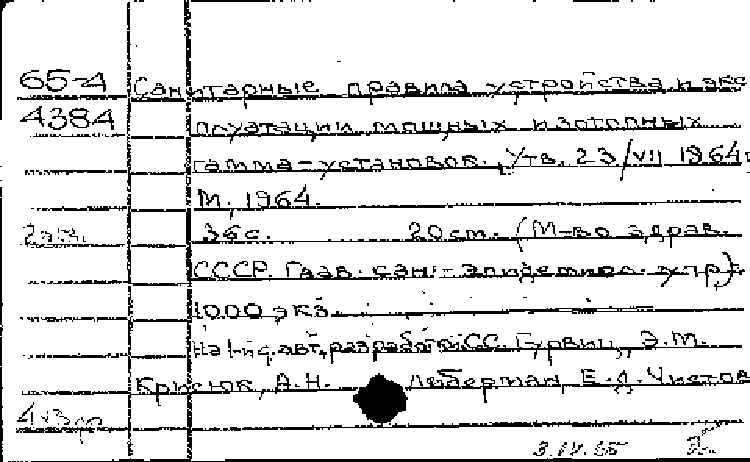 65-4 Санитарные правила устройства и экс
4384 плуатации мощных изотопных
гамма-установок. Утв. 23/VII 1964г
М., 1964.
2экз. 36 с. 20 см. (М-во здрав.
СССР. Глав. сан.-эпидемиол. упр).
1000 экз.
На 1-й с. авт. разработки: С.С. Гурвич, Э.М.
Крисюк, А.Н. Либерман, Е.Д. Чистов
3.IV.65